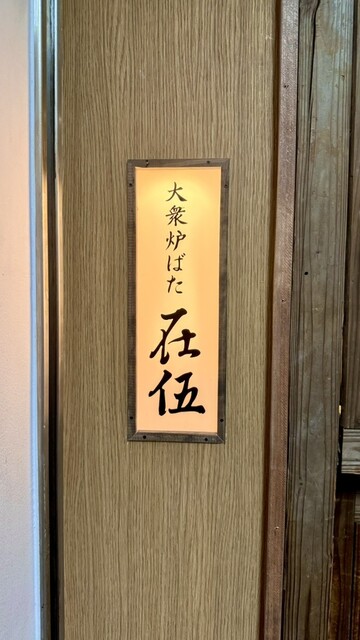 大衆炉ばた
在伍